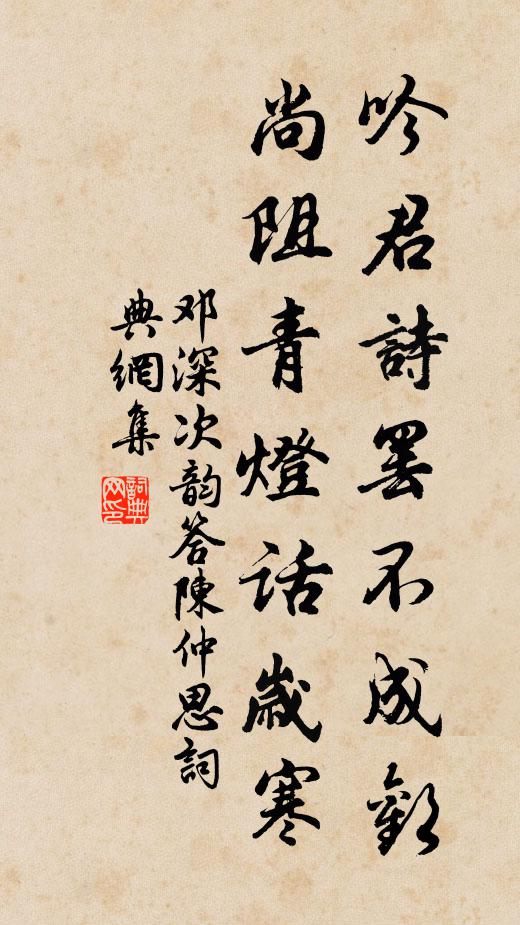 吟君詩罢不成歡
尚阻青燈話歲寒
邓深次韵答陳仲思詞
典網集
詞典网印